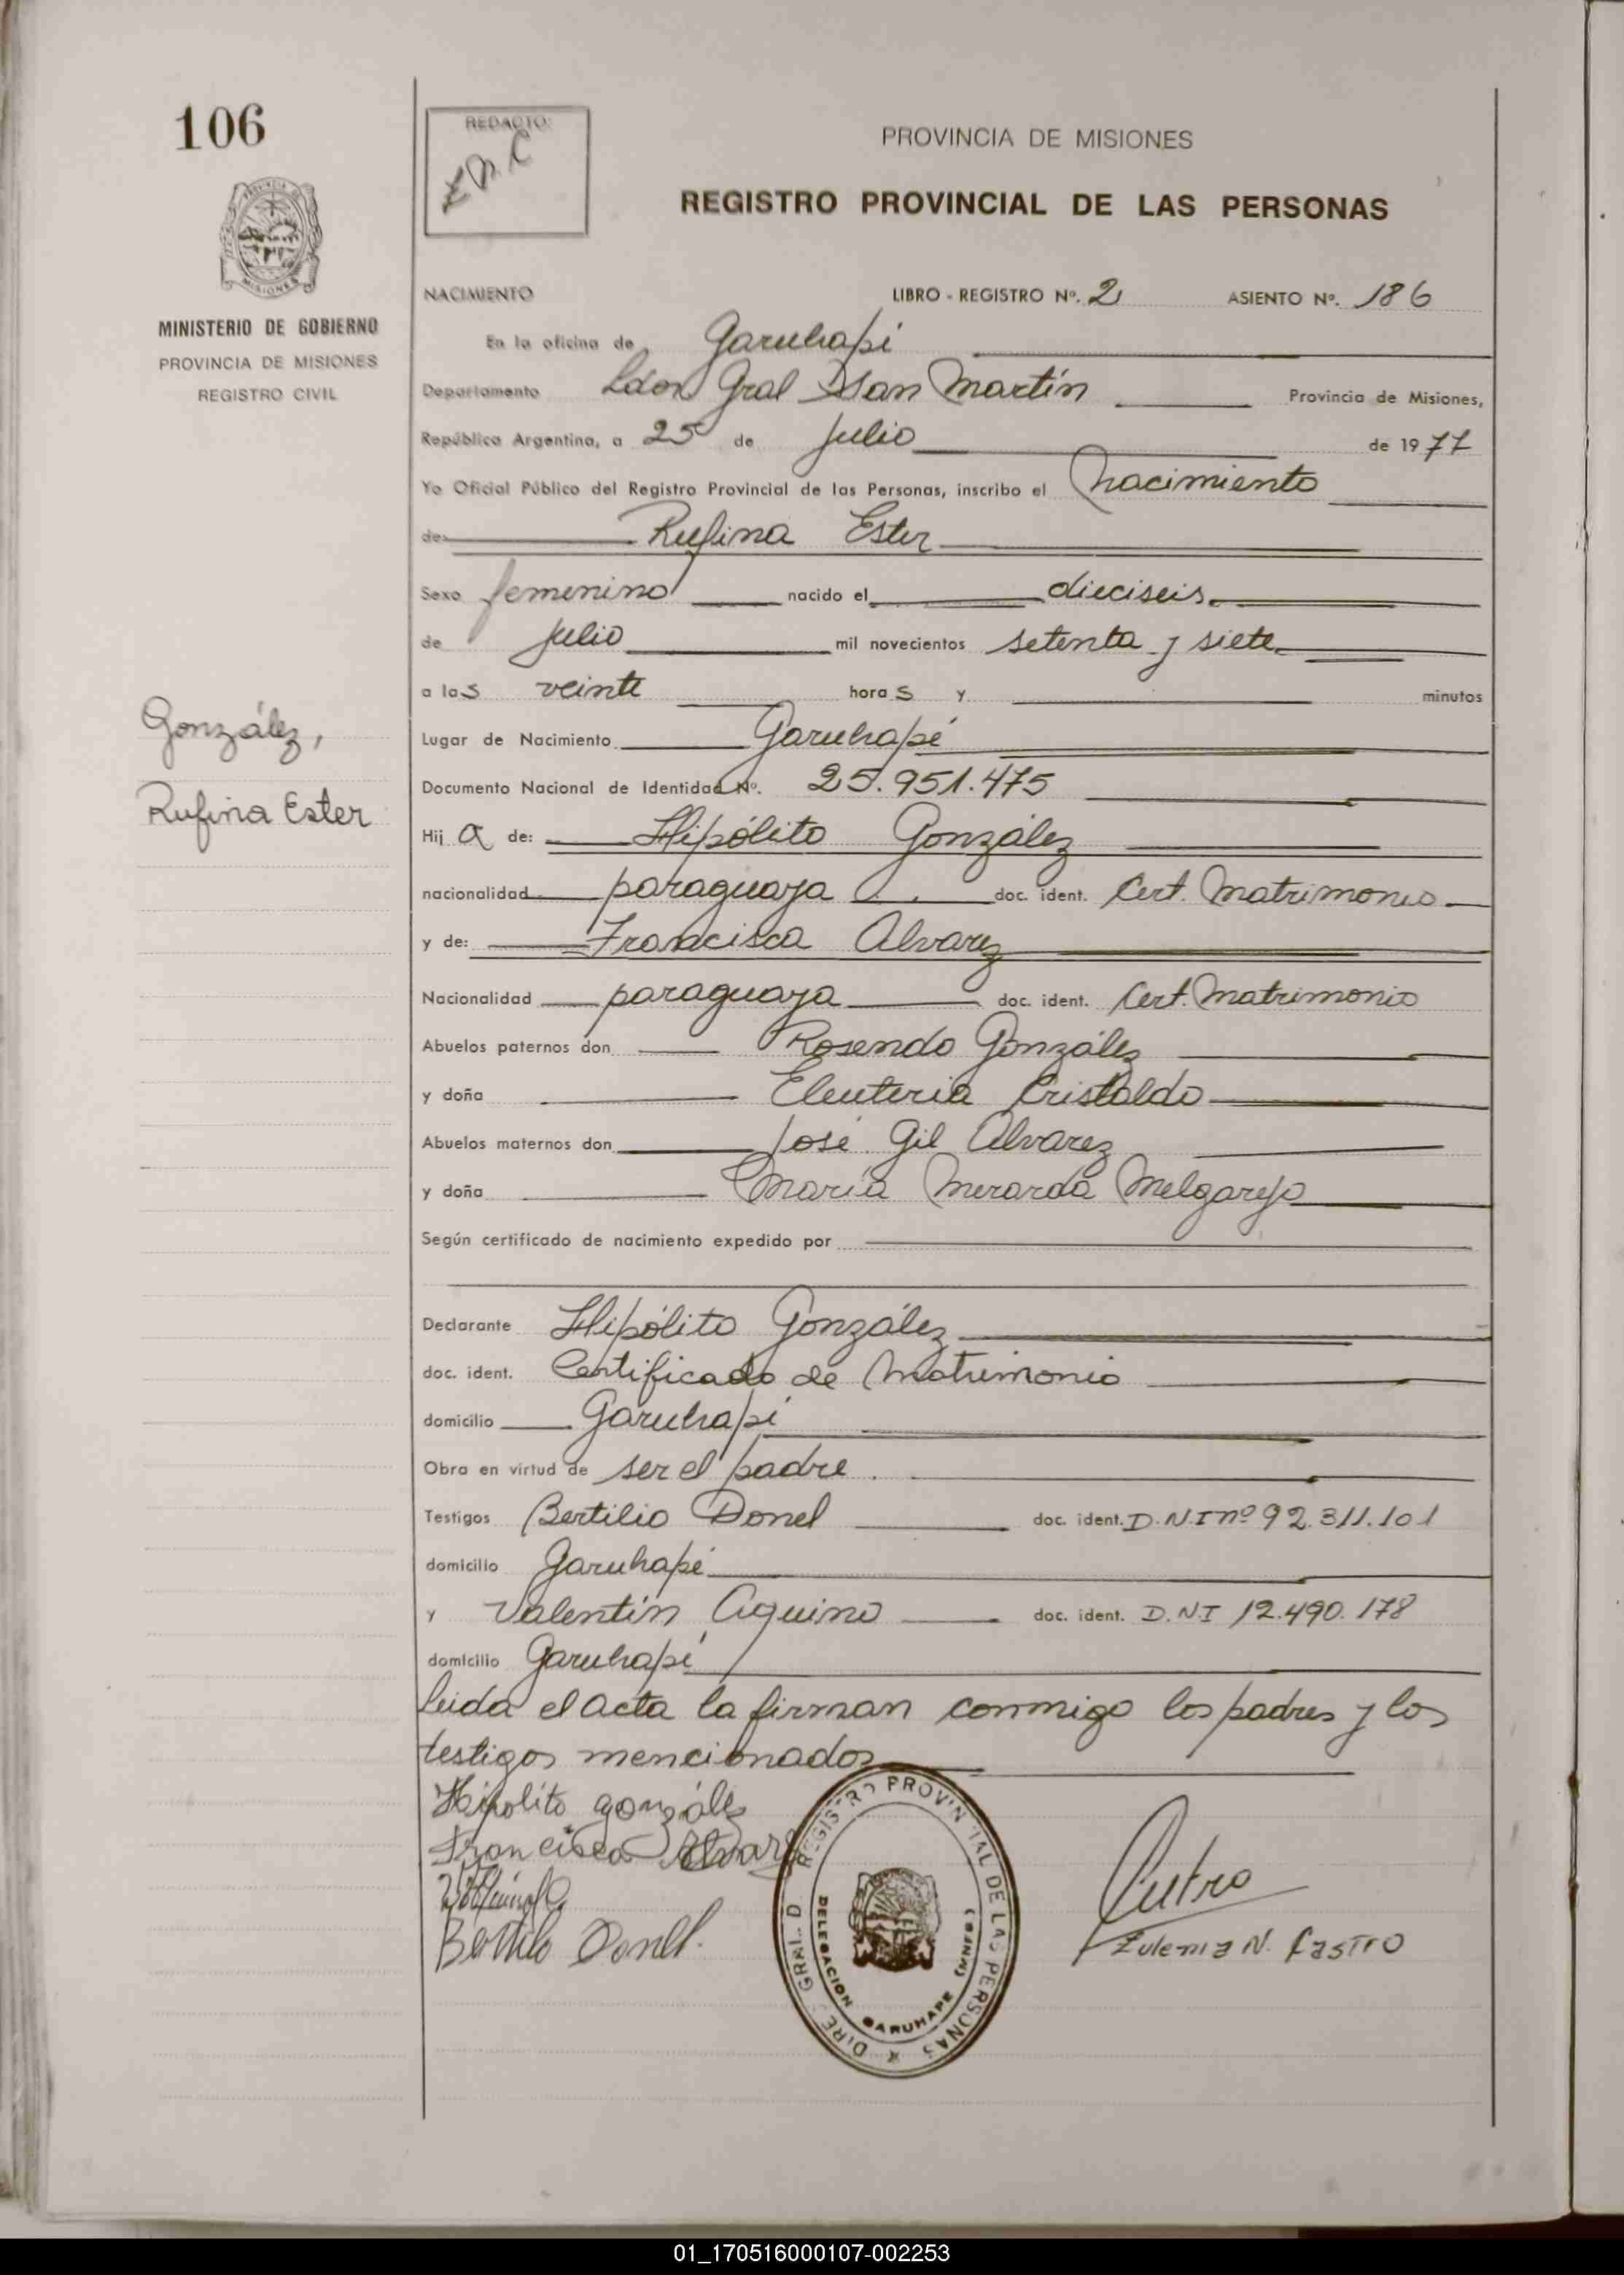 106
REDACTO:
Z.N.C
PROVINCIA DE MISIONES
REGISTRO PROVINCIAL DE LAS PERSONAS
MISIONES
MINISTERIO DE GOBIERNO
PROVINCIA DE MISIONES
REGISTRO CIVIL
NACIMIENTO LIBRO - REGISTRO Nº. 2 ASIENTO Nº. 186
En la oficina de Garuhapé
Departamento Ldor Gral San Martín Provincia de Misiones,
República Argentina, a 25 de Julio de 1977
Yo Oficial Público del Registro Provincial de las Personas, inscribo el nacimiento
de: Rufina Ester
Sexo femenino nacido el dieciseis
de Julio mil novecientos setenta y siete
a las veinte horas y minutos
González,
Rufina Ester
Lugar de Nacimiento Garuhapé
Documento Nacional de Identidad Nº. 25.951.475
Hij a de: Hipólito González
nacionalidad paraguaya doc. ident. Cert. Matrimonio
y de: Francisca Alvarez
Nacionalidad paraguaya doc. ident. Cert. Matrimonio
Abuelos paternos don Rosendo González
y doña Eleuteria Cristaldo
Abuelos maternos don José Gil Alvarez
y doña María Merarda Melgarejo
Según certificado de nacimiento expedido por
Declarante Hipólito González
doc. ident. Certificado de Matrimonio
domicilio Garuhapé
Obra en virtud de ser el padre.
Testigos Bertilio Donel doc. ident. D.N.I nº 92.311.101
domicilio Garuhapé
y Valentín Aquino doc. ident. D.N.I 12.490.178
domicilio Garuhapé
Leída el acta la firman conmigo los padres y los
testigos mencionados
Hipolito gonzález
Francisca Alvarez
Bertilo Donel.
REGISTRO PROVINCIAL DE LAS PERSONAS
DIRE GRAL D
DELEGACION GARUHAPE (MNES)
Zulema N. Castro
01_170516000107-002253